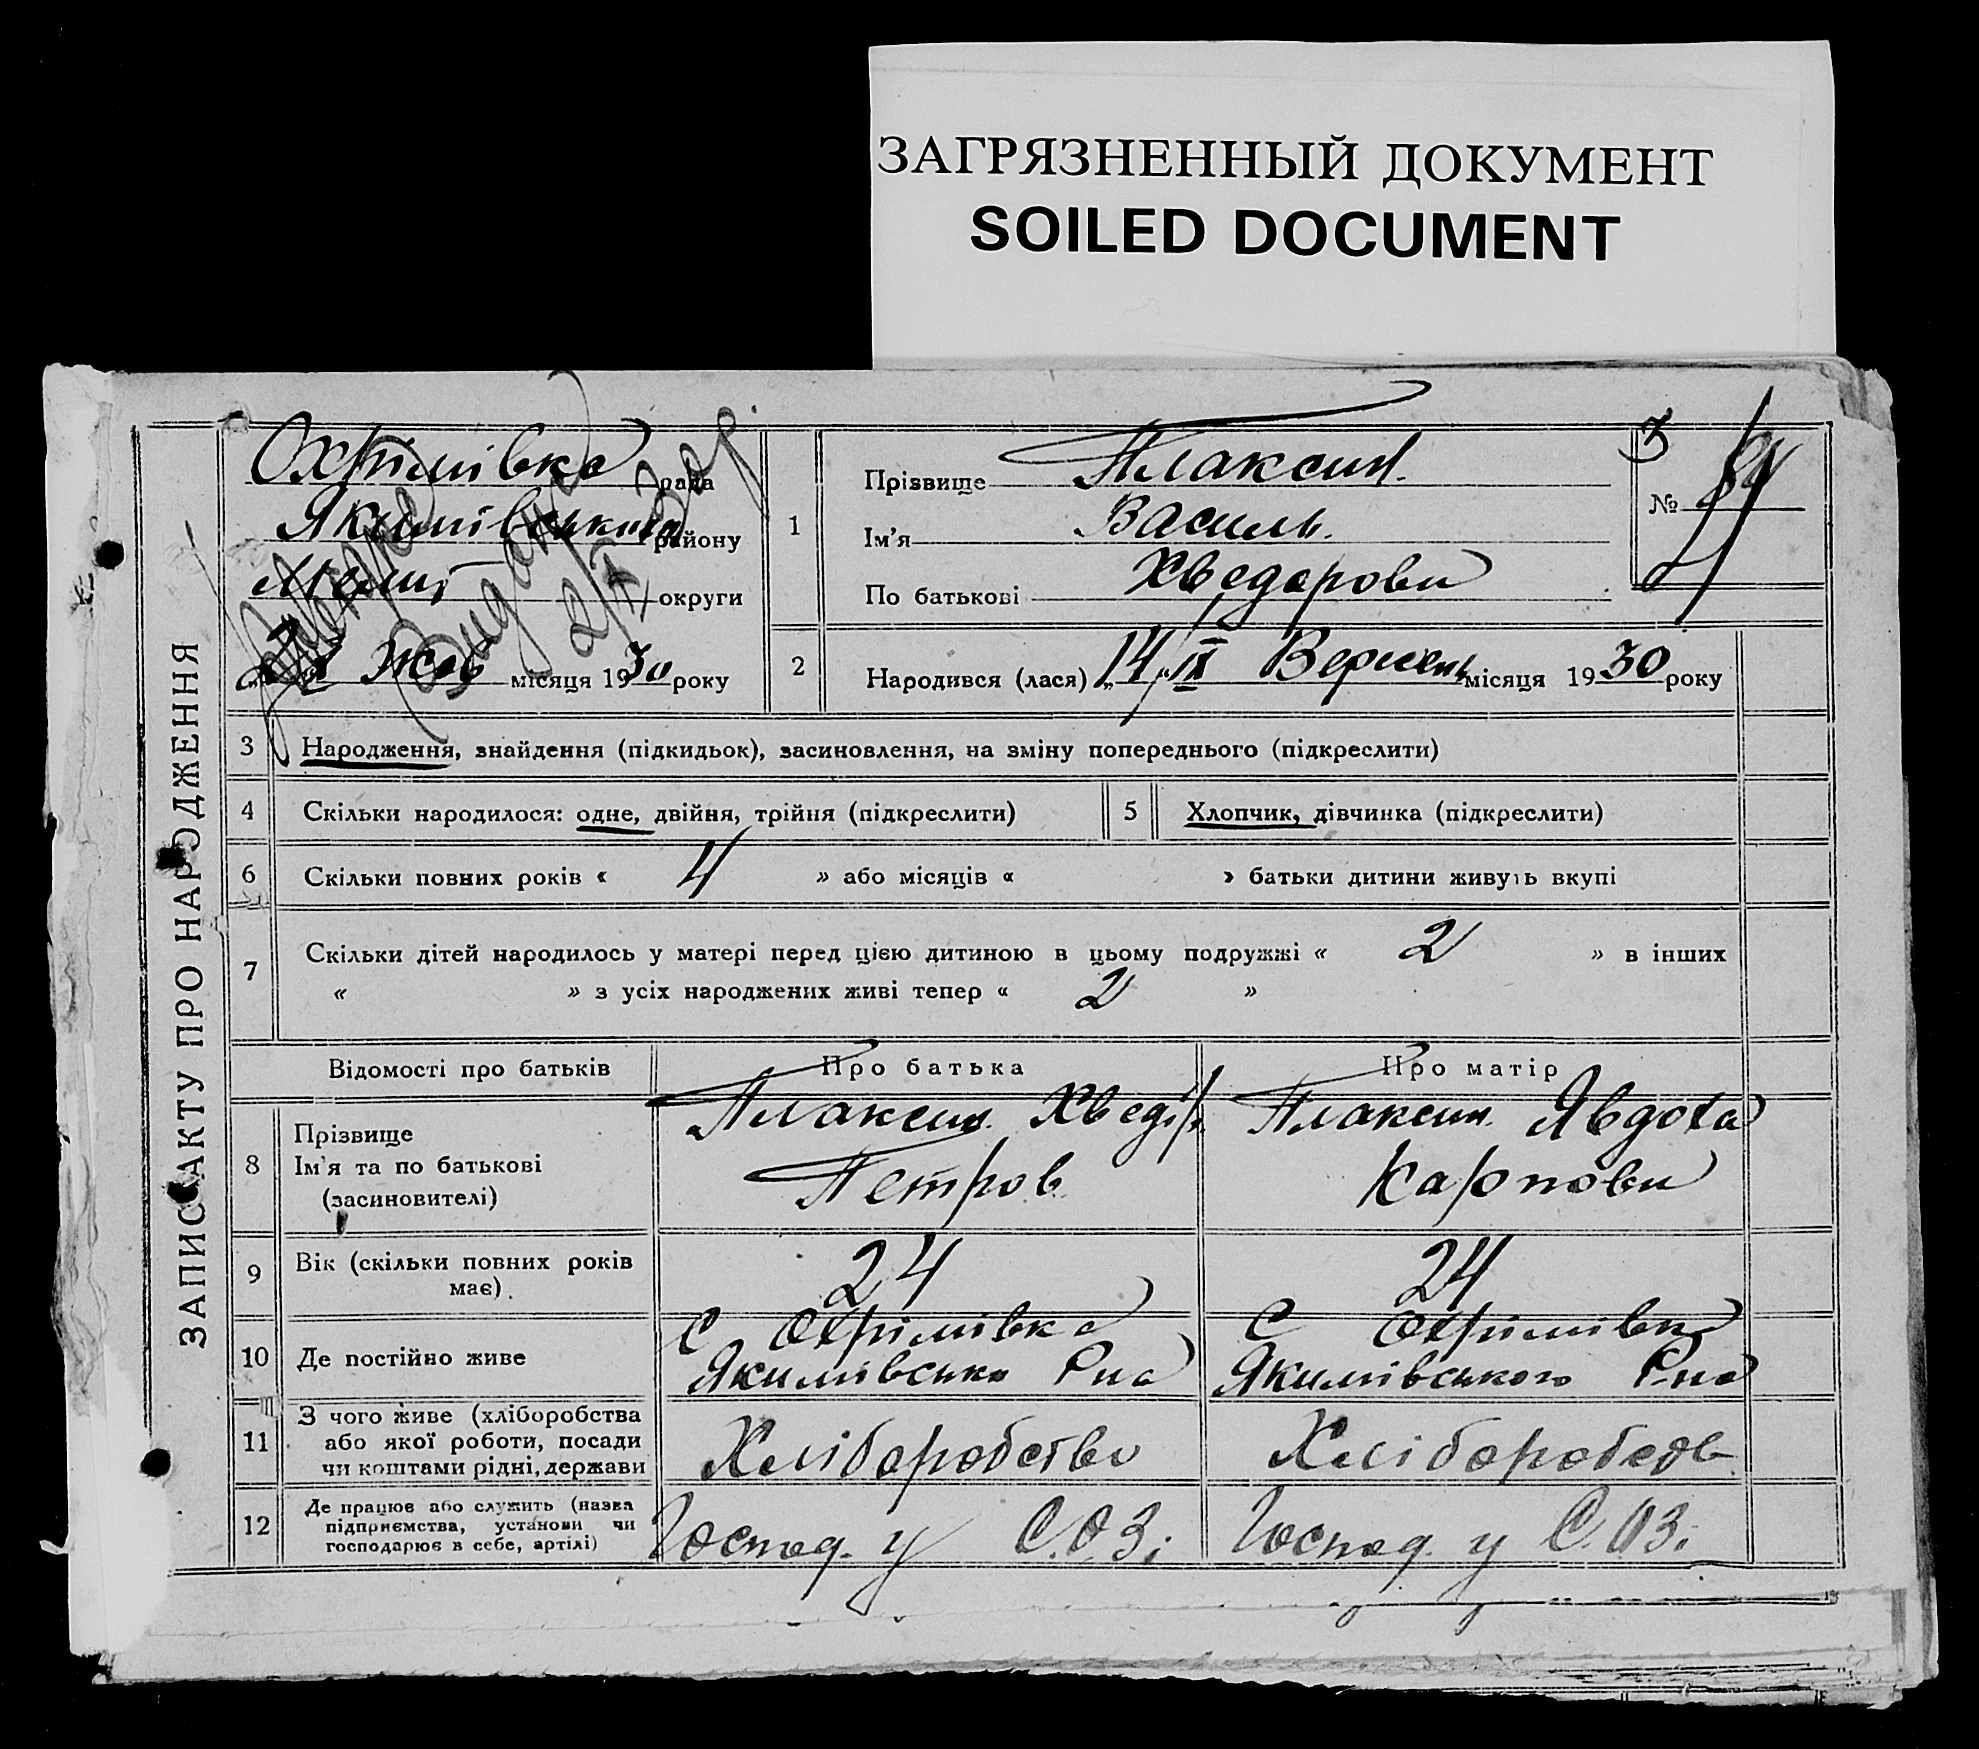 ЗАГРЯЗНЕННЫЙ ДОКУМЕНТ
SOILED DOCUMENT
ЗАПИС АКТУ ПРО НАРОДЖЕННЯ
Охрімівка рада
Якимівського району
Меліт округи
Жов місяця 1930 року
1
Прізвище Плаксин.
Ім'я Василь.
По батькові Хведорови
З
№
2
Народився (лася) „14/IX Вересень місяця 1930 року
3 Народження, знайдення (підкидьок), засиновлення, на зміну попереднього (підкреслити)
4 Скільки народилося: одне, двійня, трійня (підкреслити) 5 Хлопчик, дівчинка (підкреслити)
6 Скільки повних років « 4 » або місяців « » батьки дитини живуть вкупі
7 Скільки дітей народилось у матері перед цією дитиною в цьому подружжі « 2 » в інших
« » з усіх народжених живі тепер « 2 »
Відомості про батьків Про батька Про матір
8
Прізвище
Ім'я та по батькові
(засиновителі)
Плаксин. Хведір.
Петров
Плаксин. Явдоха
Карпови
9
Вік (скільки повних років
має).
24
24
10 Де постійно живе
С Охрімівка
Якимівсько Рна
С Охрімівка
Якимівського Рна
11
З чого живе (хліборобства
або якої роботи, посади
чи коштами рідні, держави
Хліборобство
Хліборобств
12
Де працює або служить (назва
підприємства, установи чи
господарює в себе, артілі)
Господ. у С.О.З.;
Господ. у С.О.З.